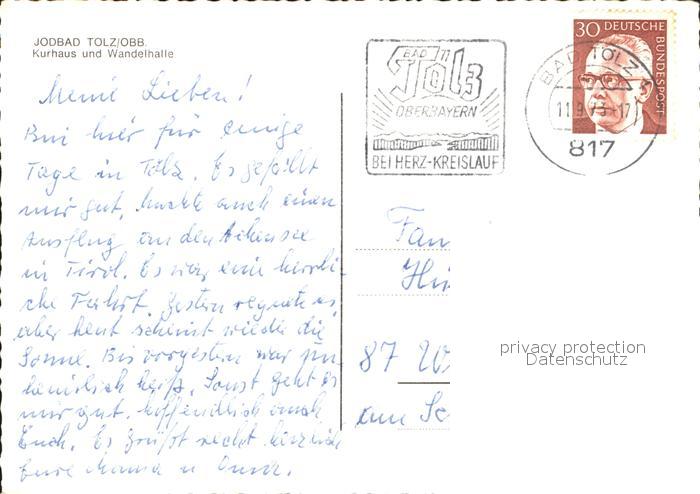 JODBAD TOLZ/OBB.
Kurhaus und Wandelhalle
Meine Lieben!
Bin hier für einige
Tage in Tölz. Es gefällt
mir gut, machte auch einen
Ausflug an den Achensee
in Tirol. Es war eine herrli-
che Fahrt. Gestern regnete es,
aber heut scheint wieder die
Sonne. Bis vorgestern war
heiß. Sonst geht es
mir gut. Hoffendlich auch
Euch. Es grüßt recht herzlich
Eure Mama u. Oma.
BAD
Tölz
OBERBAYERN
BEI HERZ-KREISLAUF
30 DEUTSCHE
BUNDESPOST
BAD TÖLZ
11.9.73-17
817
Fam
87 W
am Sc
privacy protection
Datenschutz